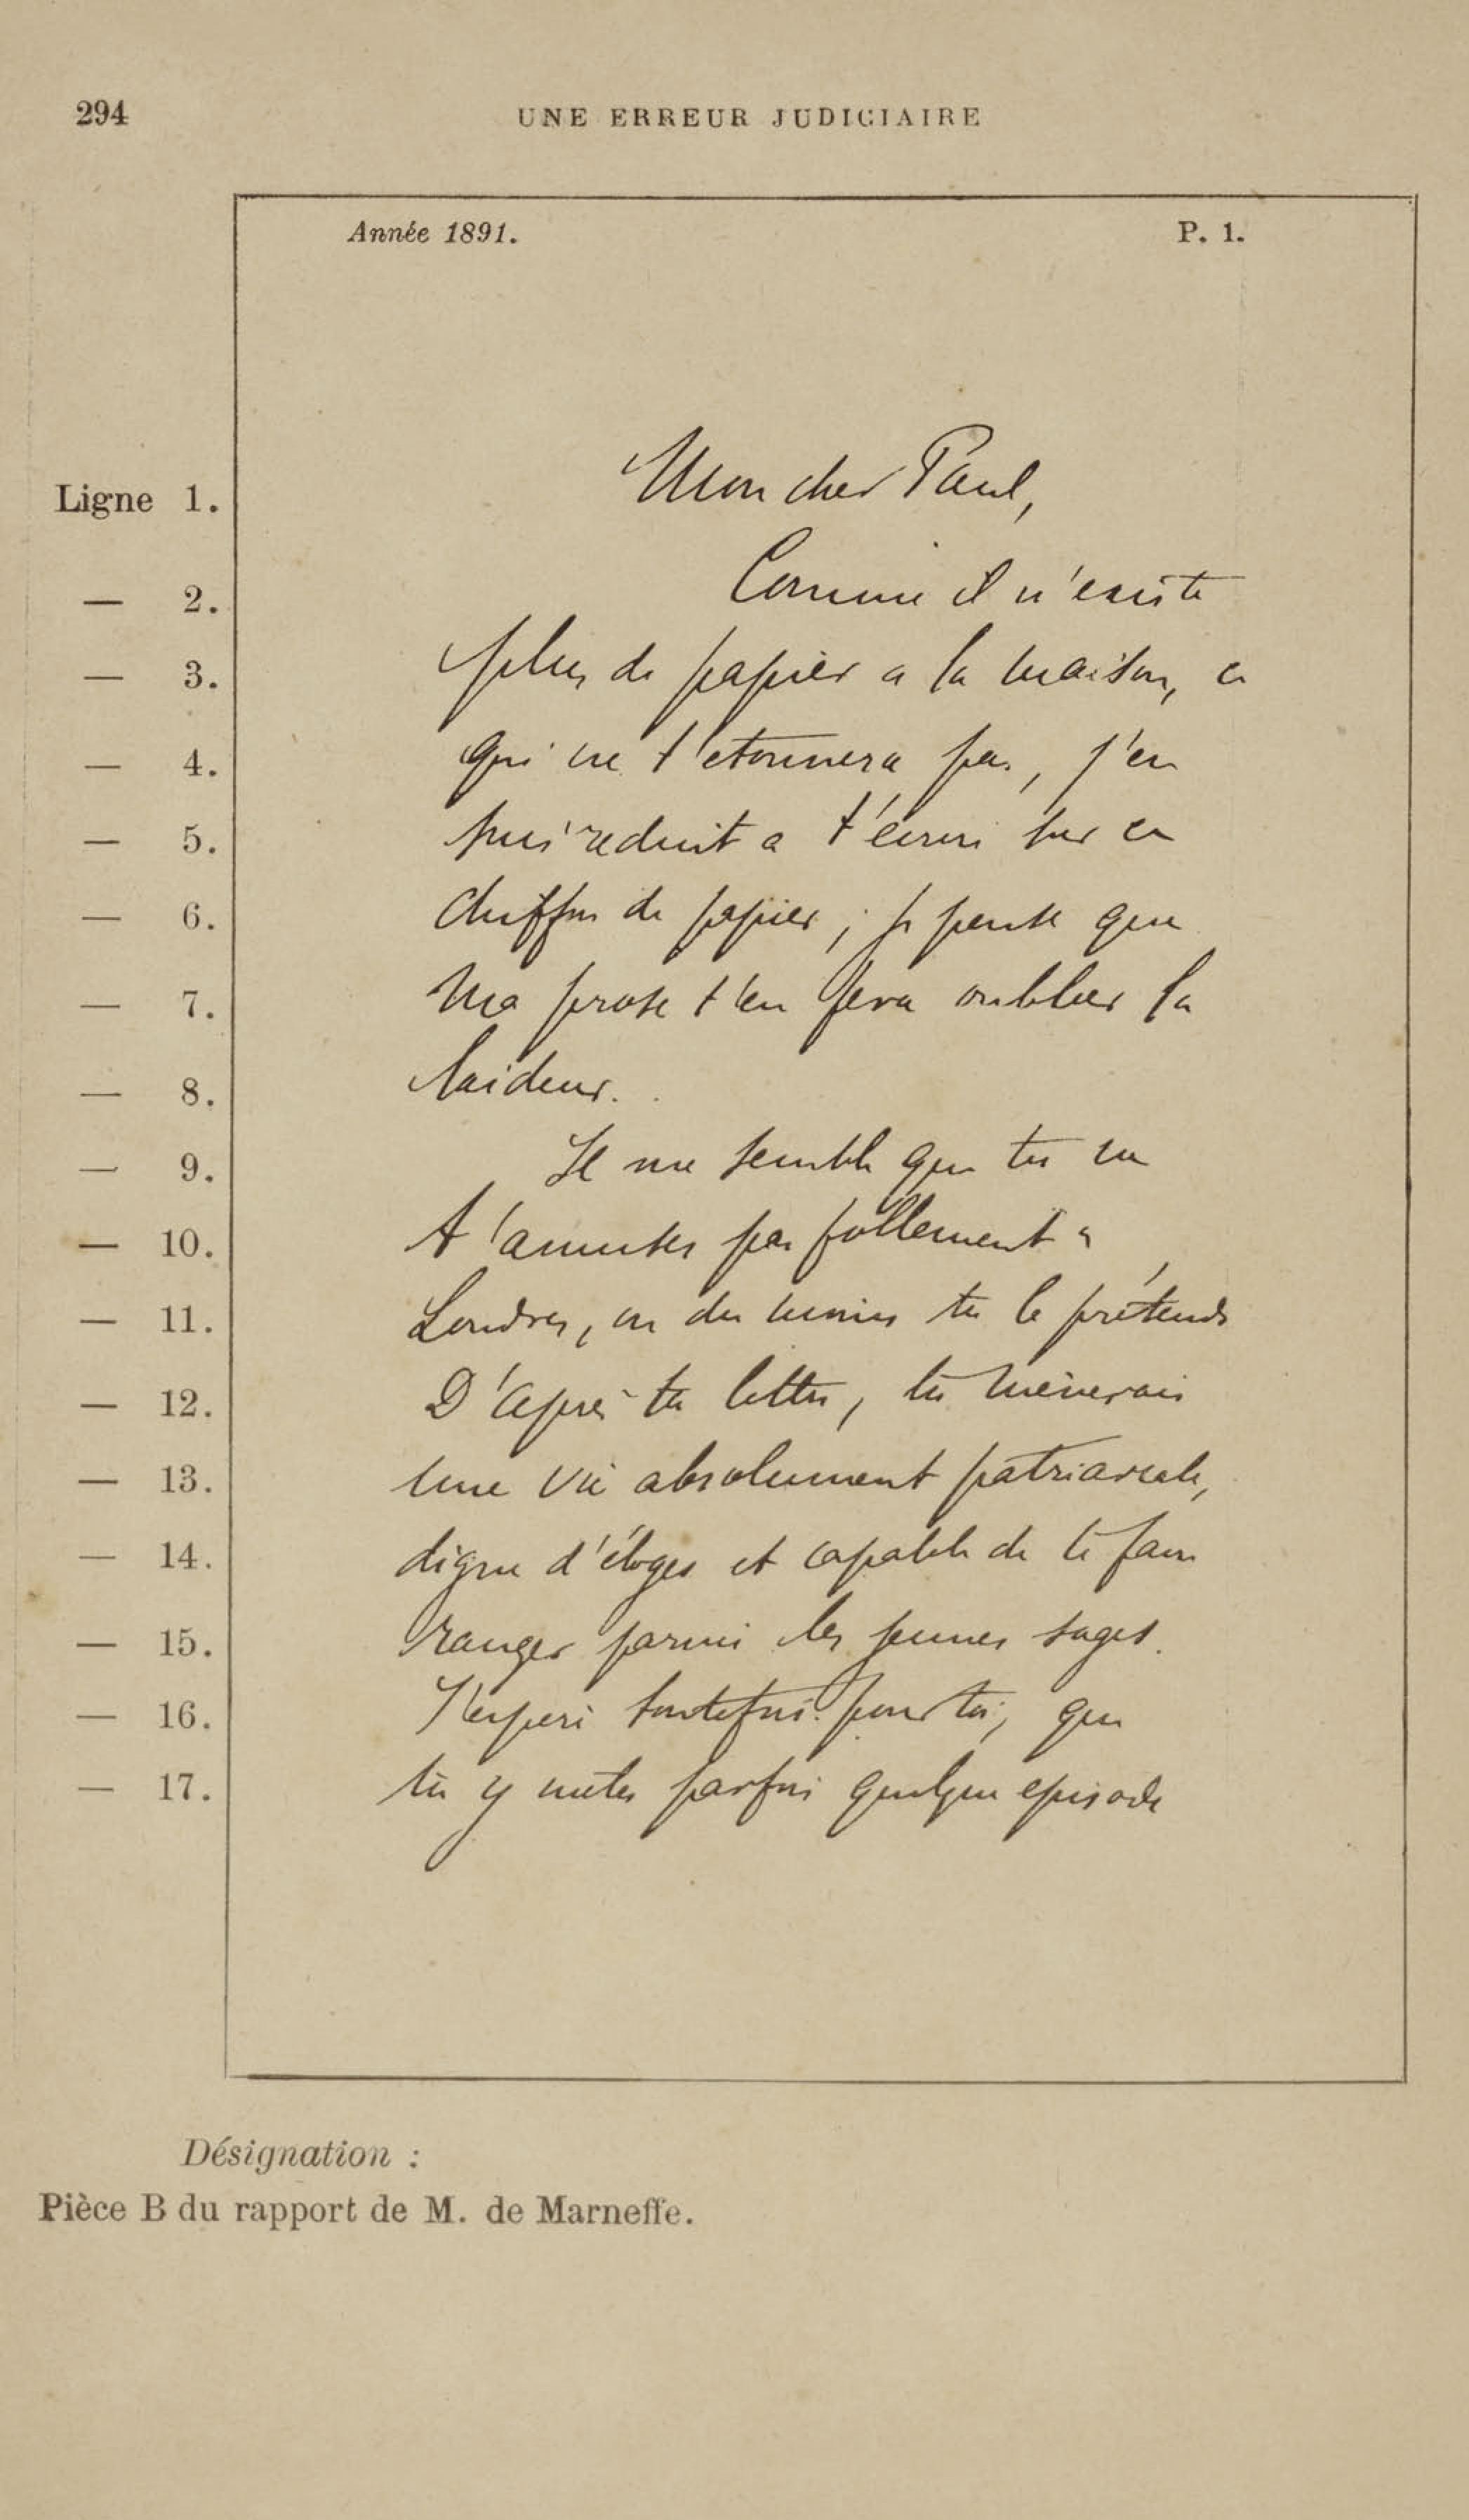 294
UNE ERREUR JUDICIAIRE
Année 1891. P. 1.
Ligne 1. Mon cher Paul,
— 2. Comme il n'existe
— 3. plus de papier a la maison, ce
— 4. qui ne t'etonnera pas, j'en
— 5. suis reduit a t'écrire sur ce
— 6. chiffon de papier ; je pense que
— 7. ma prose t'en fera oublier la
— 8. laideur.
— 9. Il me semble que tu ne
— 10. t'amuses pas follement a
— 11. Londres, ou du moins tu le prétends
— 12. D'après ta lettre, tu mènerais
— 13. une vie absolument patriarcale,
— 14. digne d'éloges et capable de te faire
— 15. ranger parmi les jeunes sages.
— 16. J'espère toutefois pour toi, que
— 17. tu y mêles parfois quelque episode
Désignation :
Pièce B du rapport de M. de Marneffe.